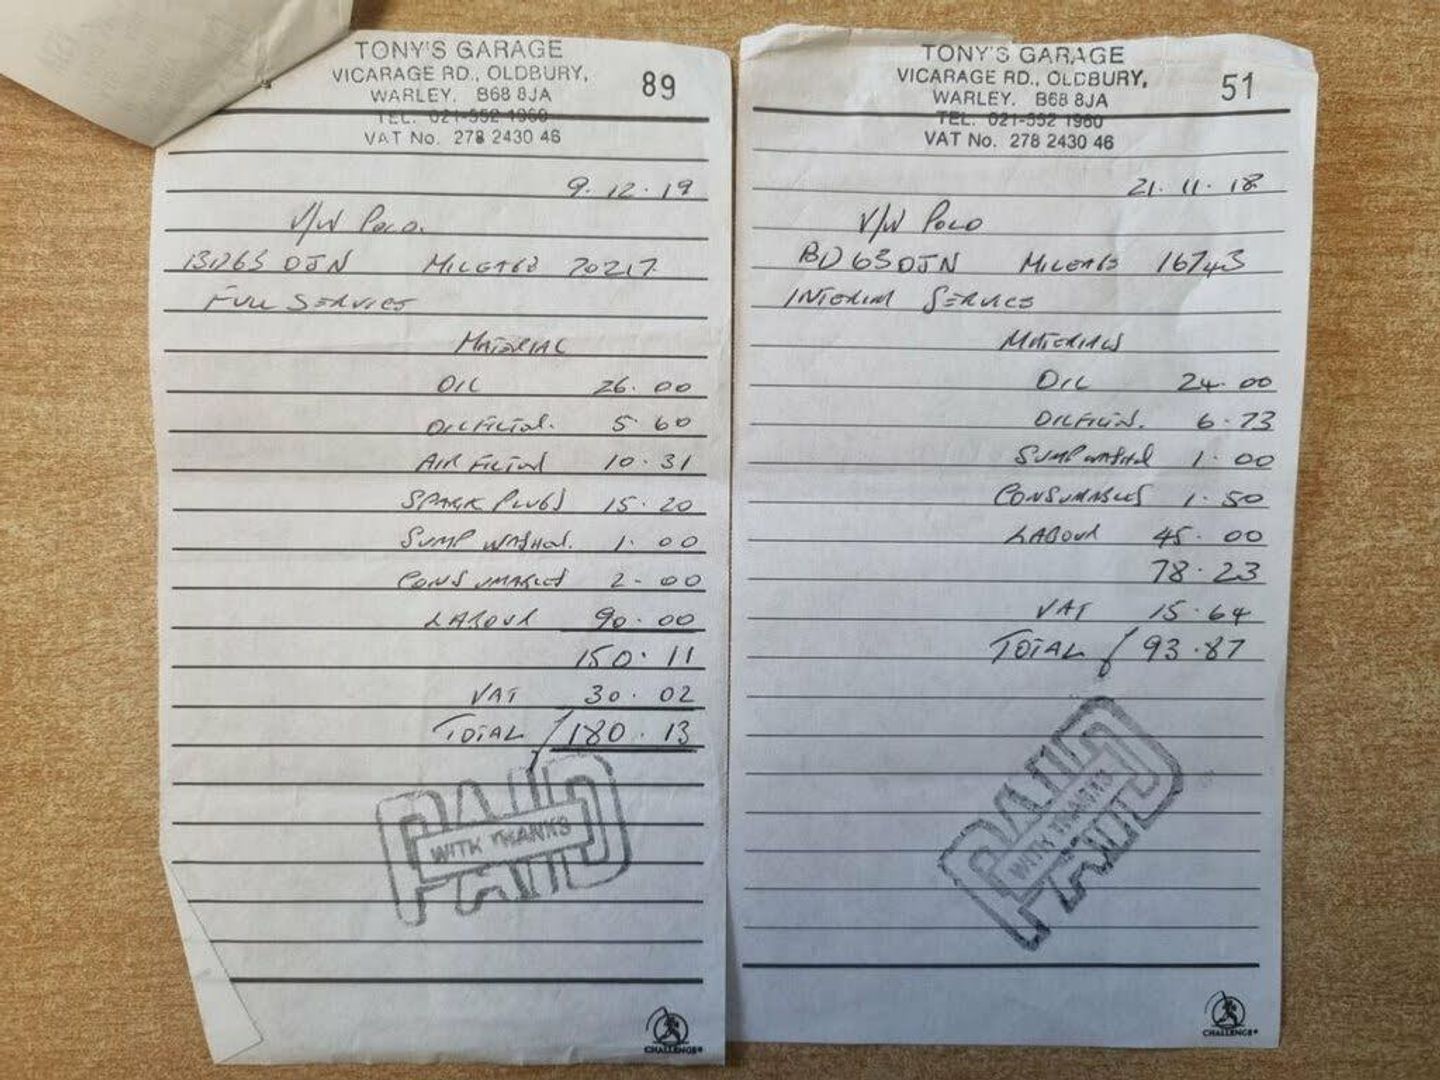 TONY'S GARAGE
VICARAGE RD., OLDBURY,
WARLEY. B68 8JA
TEL. 021-552 1960
VAT No. 278 2430 46
89
9.12.19
V/W POLO.
BD63 OJN MILEAGE 20217
FULL SERVICE
MATERIAL
OIL 26.00
OILFILTER. 5.60
AIR FILTER 10.31
SPARK PLUGS 15.20
SUMP WASHER. 1.00
CONSUMABLES 2.00
LABOUR 90.00
150.11
VAT 30.02
TOTAL £180.13
PAID
WITH THANKS
PAID
CHALLENGE®
TONY'S GARAGE
VICARAGE RD., OLDBURY,
WARLEY. B68 8JA
TEL. 021-552 1960
VAT No. 278 2430 46
51
21.11.18
V/W POLO
BD63OJN MILEAGE 16743
INTERIM SERVICE
MATERIALS
OIL 24.00
OILFILTER. 6.73
SUMPWASHER 1.00
CONSUMABLES 1.50
LABOUR 45.00
78.23
VAT 15.64
TOTAL £93.87
PAID
WITH THANKS
PAID
CHALLENGE®